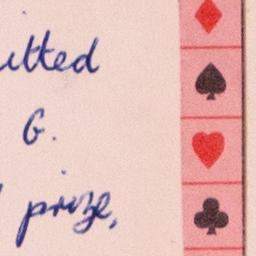 itted
G.
prize,